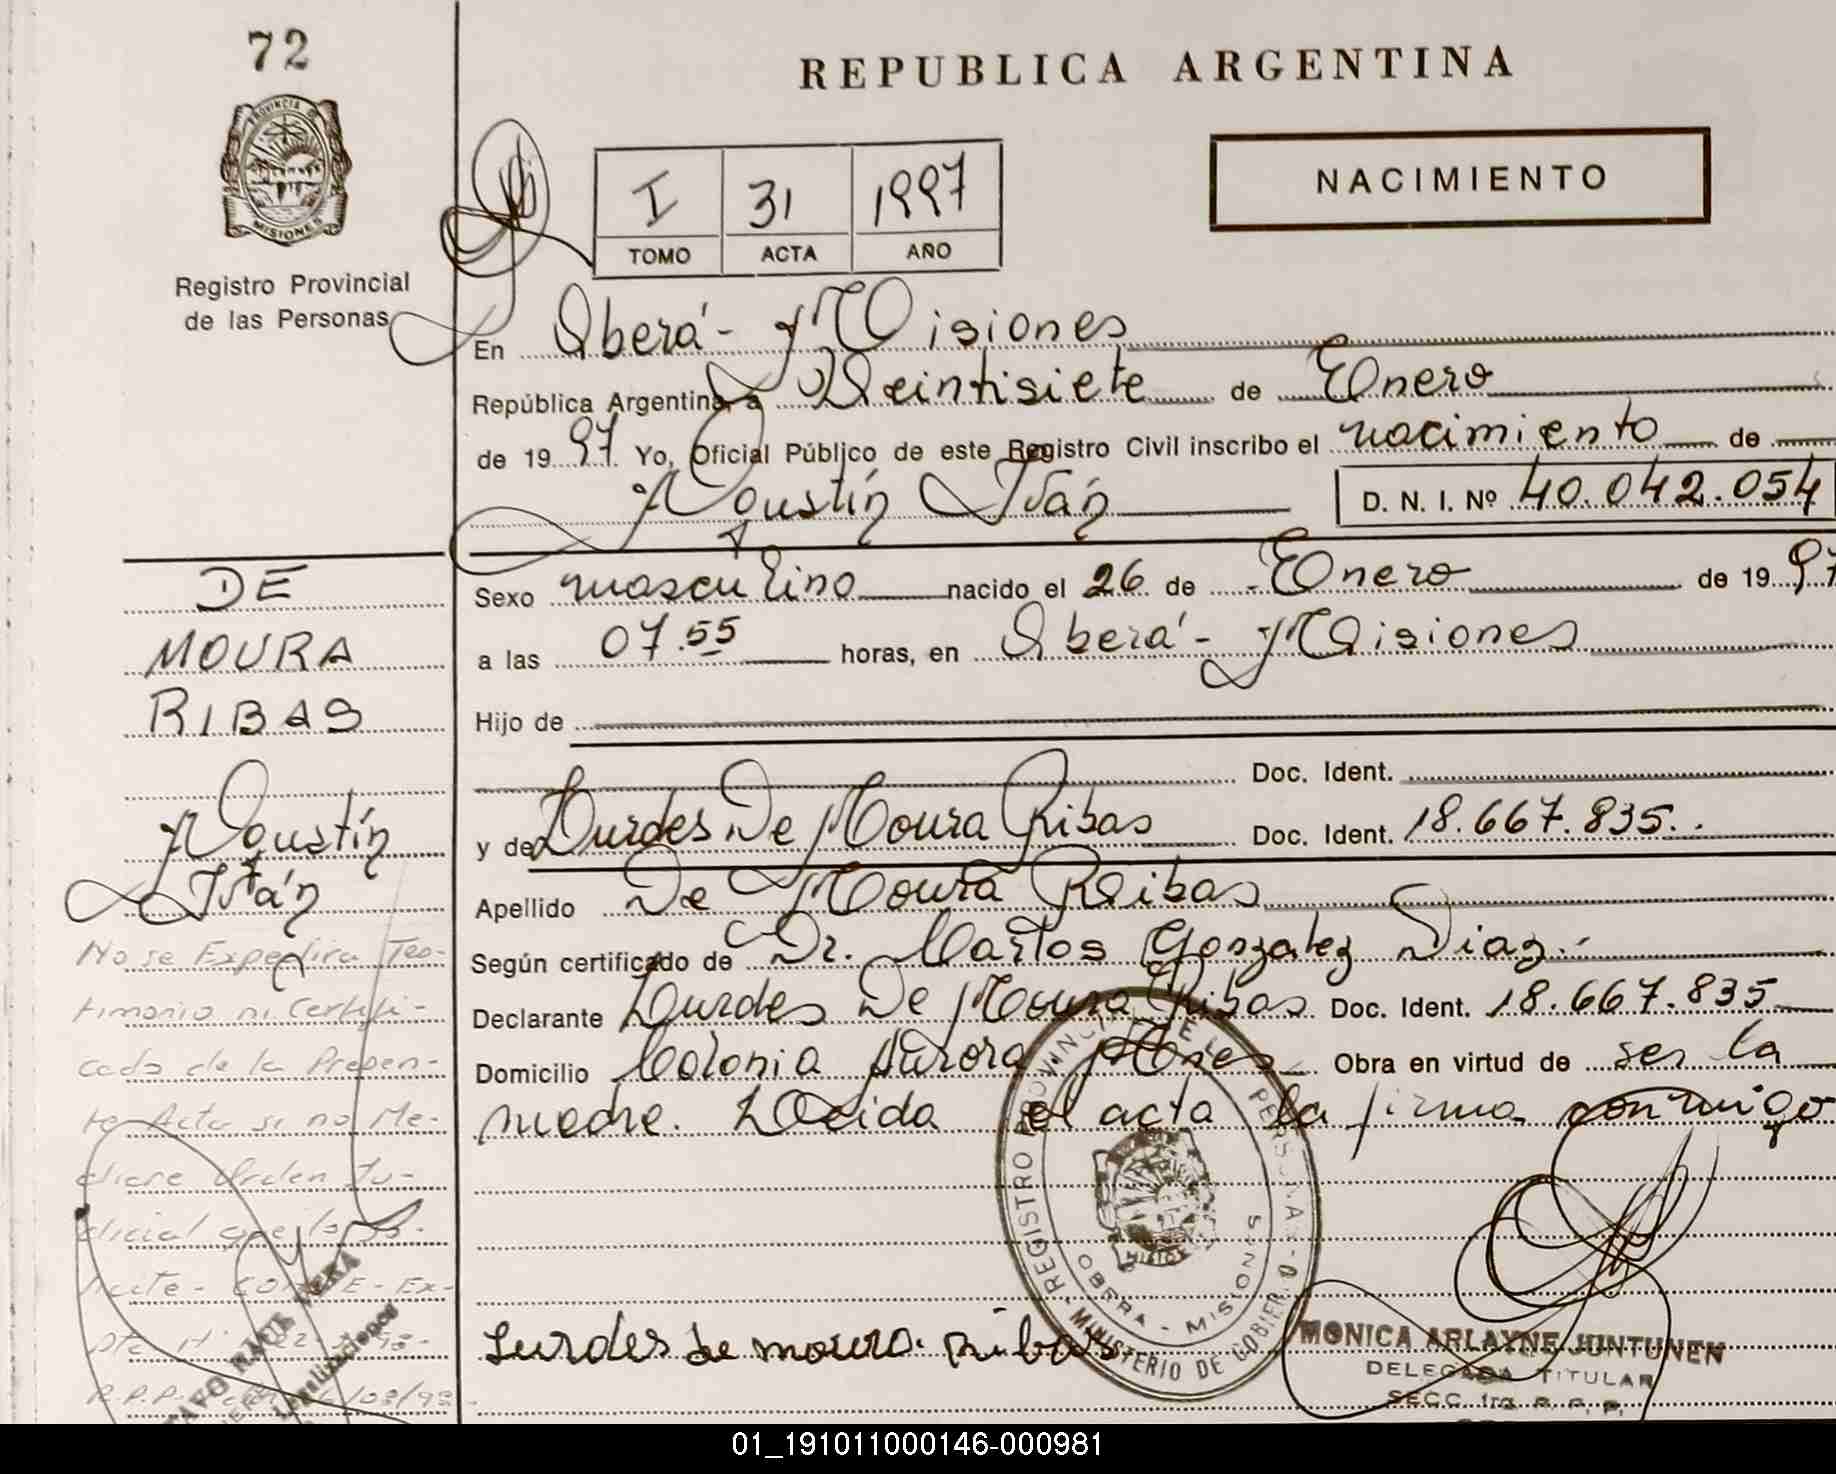 72
REPUBLICA ARGENTINA
PROVINCIA DE
MISIONES
Registro Provincial
de las Personas
I 31 1997
TOMO ACTA AÑO
NACIMIENTO
En Oberá - Misiones
República Argentina, a Veintisiete de Enero
de 1997 Yo, Oficial Público de este Registro Civil inscribo el nacimiento de
Agustín Iván D. N. I. Nº 40.042.054
DE
MOURA
RIBAS
Agustín
Iván
Sexo masculino nacido el 26 de Enero de 1997
a las 07.55 horas, en Oberá - Misiones
Hijo de
Doc. Ident.
y de Lurdes De Moura Ribas Doc. Ident. 18.667.835.
Apellido De Moura Ribas
Según certificado de Dr. Carlos Gonzalez Diaz.
Declarante Lurdes De Moura Ribas Doc. Ident. 18.667.835
Domicilio Colonia Aurora Mnes Obra en virtud de ser la
madre. Leida el acta la firma conmigo
No se Expedira Tes-
timonio ni Certifi-
cado de la Presen-
te Acta si no Me-
diare Orden Ju-
dicial que lo
Lurdes de moura Ribas
REGISTRO PROVINCIAL DE LAS PERSONAS
MINISTERIO DE GOBIERNO
OBERA - MISIONES
MONICA ARLAYNE JUNTUNEN
DELEGADA TITULAR
SECC. 1ra R. P. P.
01_191011000146-000981